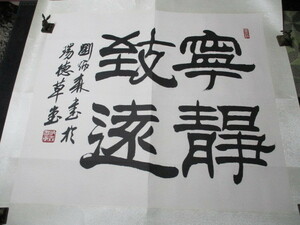 寧靜
致遠
劉炳森書於
揚德草堂